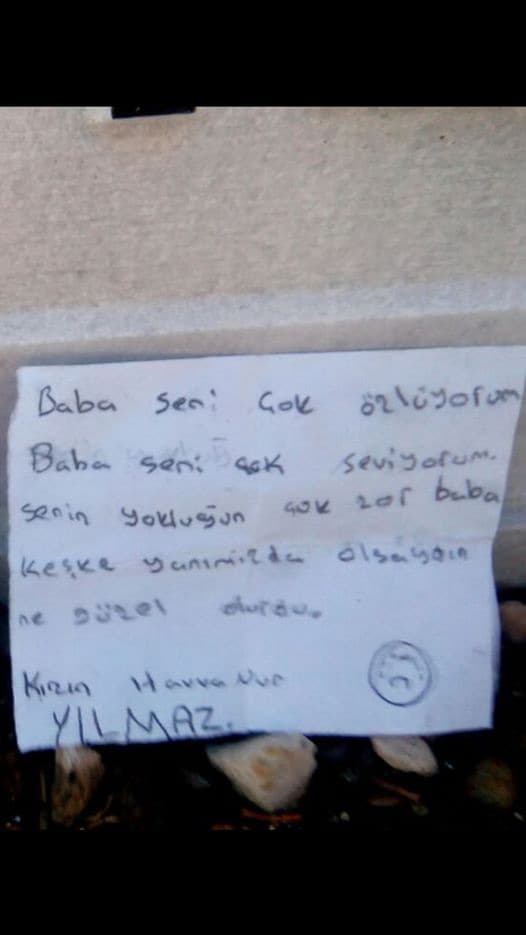 Baba seni çok özlüyorum
Baba seni çok seviyorum.
senin yokluğun çok zor baba
keşke yanımızda olsaydın
ne güzel olurdu.
Kızın Havva Nur
YILMAZ.